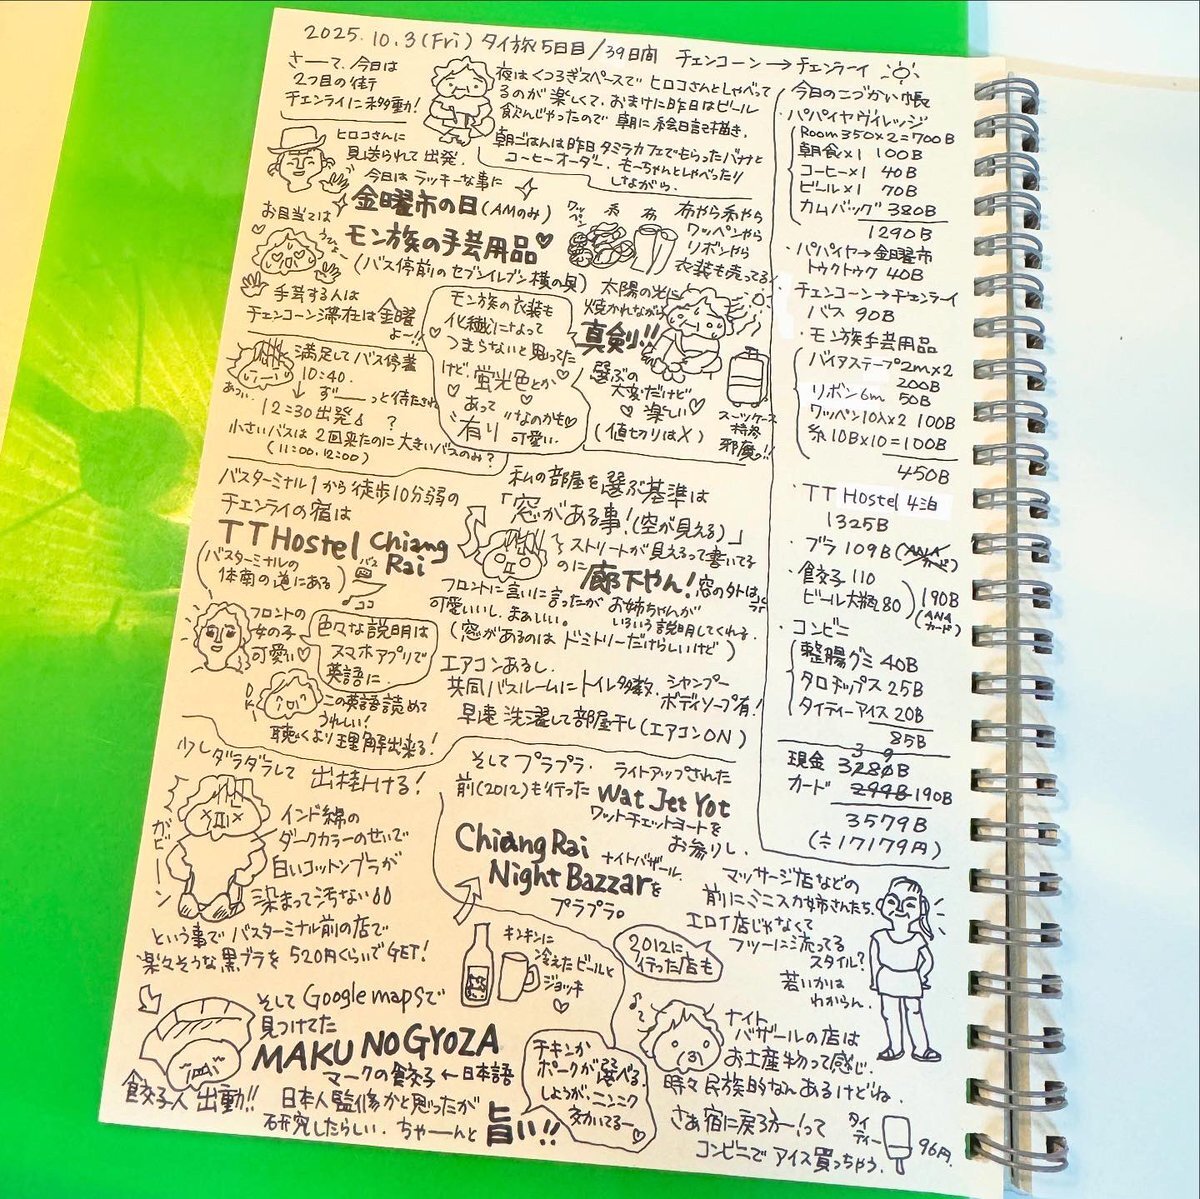 2025.10.3(Fri) タイ旅5日目/39日間 チェンコーン→チェンラーイ
さーて、今日は
2つ目の街
チェンライに移動!
夜はくつろぎスペースでヒロコさんとしゃべって
るのが楽しくて、おまけに昨日はビール
飲んじゃったので朝に絵日記描き、
朝ごはんは昨日タミラカフェでもらったバナナと
コーヒーオーダー。もーちゃんとしゃべったり
しながら。
ヒロコさんに
見送られて出発。
今日はラッキーな事に
金曜市の日(AMのみ)
お目当ては
モン族の手芸用品♡
(バス停前のセブンイレブン横の奥)
手芸する人は
チェンコーン滞在は金曜
よー!!
ワッペン
糸
布
布やら糸やら
ワッペンやら
リボンやら
衣装も売ってる!
モン族の衣装も
化繊になって
つまらないと思ってた
けど、蛍光色とか
あって
"なのかも
有り 可愛い
太陽の光に
焼かれながら
真剣!!
選ぶの
大変だけど
楽しい
(値切りはX)
スーツケース
特殊
邪魔!!
満足してバス停着
10:40.
↓ ずーーっと待たされ
あつい
12:30出発
?
小さいバスは2回来たのに大きいバスのみ?
(11:00, 12:00)
バスターミナル1から徒歩10分弱の
チェンライの宿は
TT Hostel Chiang
Rai
(バスターミナルの
体南の道にある)
バス
ココ
私の部屋を選ぶ基準は
「窓がある事!(空が見える)」
ストリートが見えるって書いてる
のに 廊下やん!窓の外は
フロントに言いに言ったが お姉ちゃんが
可愛いいし、まぁいい。 いろいろ説明してくれる.
(窓があるのはドミトリーだけらしいけど)
フロントの
女の子
可愛い
色々な説明は
スマホアプリで
英語に.
この英語読めて
うれしい!
聴くより理解出来る!
エアコンあるし.
共同バスルームにトイレ多数、シャンプー
ボディソープ有!
早速洗濯して部屋干し(エアコンON)
少しダラダラして 出掛ける!
ガビーン
インド綿の
ダークカラーのせいで
白いコットンブラが
染まって汚ない
という事でバスターミナル前の店で
楽々そうな黒ブラを520円くらいでGET!
そしてプラプラ. ライトアップされた
前(2012)も行った Wat Jet Yot
ワットチェットヨートを
お参りし.
Chiang Rai
Night Bazzarを
ナイトバザール.
プラプラ。
キンキンに
冷えたビールと
ジョッキ
♡
2012に
行った店も
マッサージ店などの
前にミニスカ姉さんたち.
エロイ店じゃなくて
フツーに流ってる
スタイル?
若いかは
わからん.
そしてGoogle mapsで
見つけてた
MAKU NO GYOZA
マークの餃子←日本語
餃子人出動!!
日本人監修かと思ったが
研究したらしい. ちゃーんと 旨い!!
チキンか
ポークが選べる.
しょうが、ニンニク
効いてるー♡
ナイト
バザールの店は
お土産物って感じ.
時々民族的なんあるけどね.
さあ宿に戻ろかー!って
コンビニでアイス買っちゃう.
タイ
ティー
96円.
今日のこづかい帳
・パパイヤヴィレッジ
Room350×2=700B
朝食×1 100B
コーヒー×1 40B
ビール×1 70B
カムバッグ 380B
1290B
・パパイヤ→金曜市
トゥクトゥク 40B
・チェンコーン→チェンライ
バス 90B
・モン族手芸用品
バイアステープ2m×2
200B
リボン6m 50B
ワッペン10入×2 100B
糸10B×10=100B
450B
・TT Hostel 4泊
1325B
・ブラ 109B
・餃子 110
ビール大瓶 80
190B
(ANA
カード)
・コンビニ
整腸グミ 40B
タロチップス 25B
タイティーアイス 20B
85B
現金
カード 190B
3579B
(≒17179円)